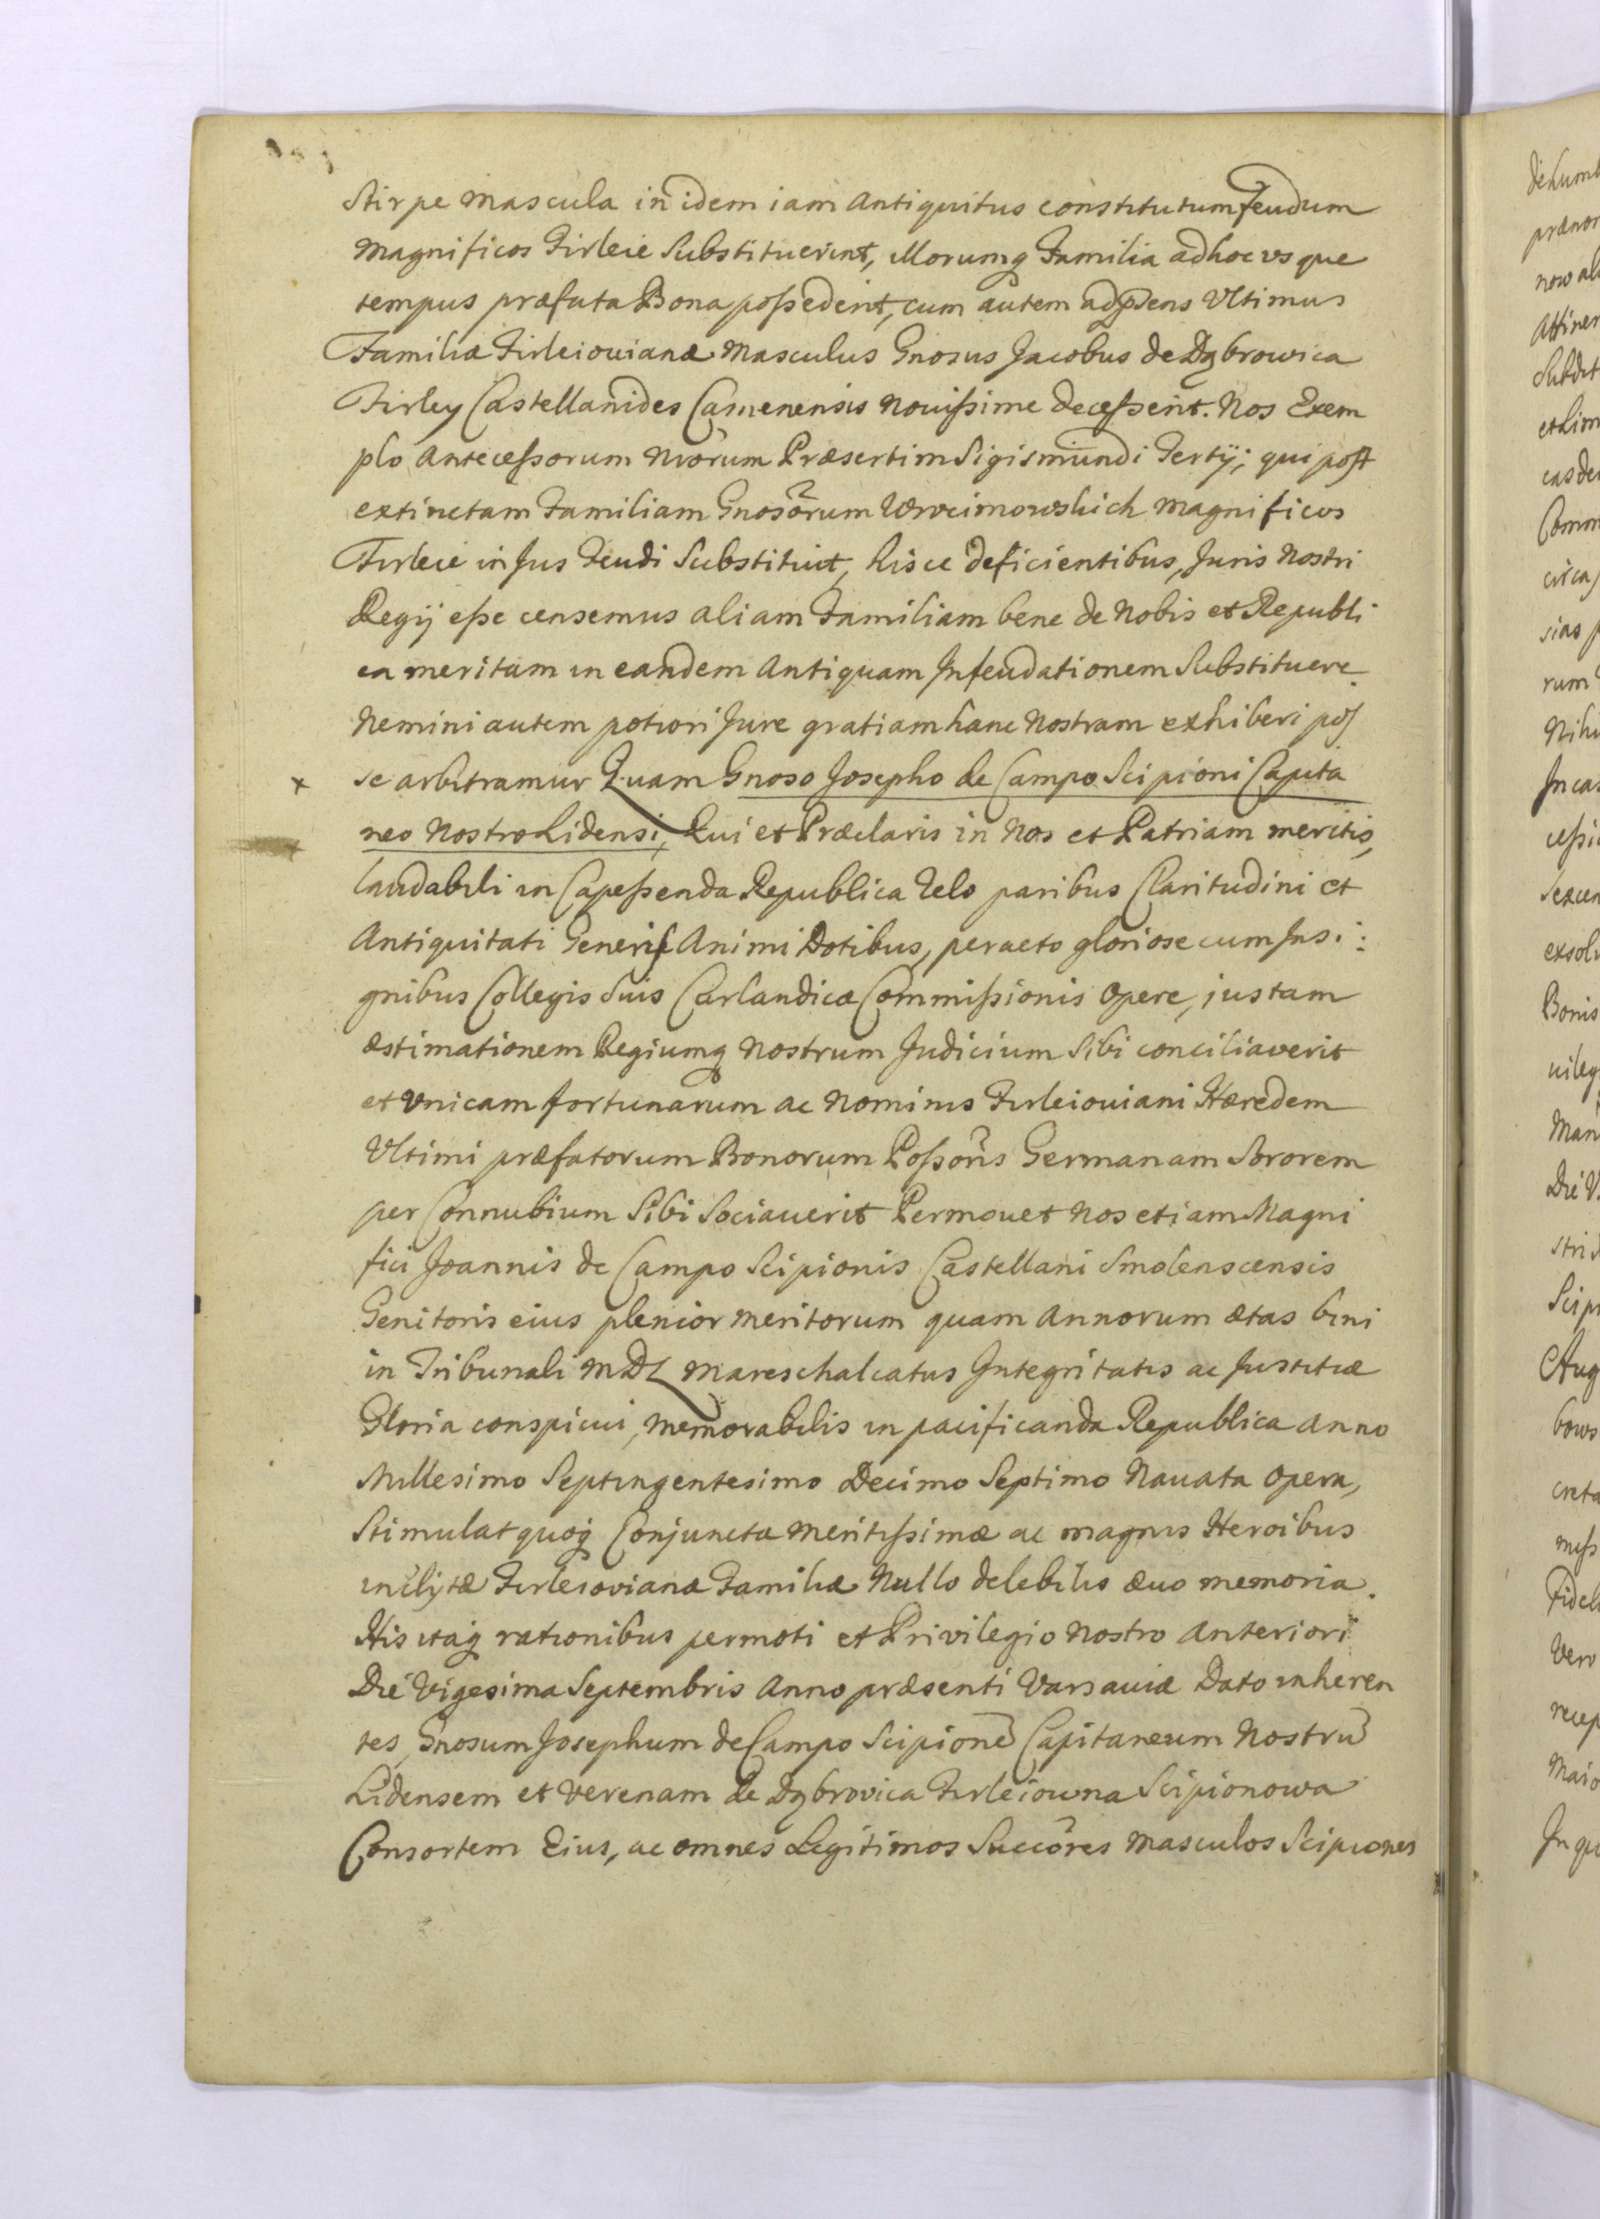 Stirpe mascula in idem iam Antiquitus constitutum feudum
Magnificos Firleie Substituerint, illorumq Familia adhoc vsque
tempus præfata Bona possederit, cum autem adpdens Vltimus
Familiæ Firleiouianæ Masculus Gnosus Jacobus de Dąbrowica
Firley Castellanides Camenensis Nouissime decesserit. Nos Exem
plo Antecessorum Nrorum Præsertim Sigismundi Tertij; qui post
extinctam Familiam Gnosorum magnificos
Firleie in Jus Feudi Substituit, hisce deficientibus, Juris Nostri
Regij esse censemus aliam Familiam bene de Nobis et Republi
ca meritam in eandem Antiquam Infeudationem Substituere
Nemini autem potiori Jure gratiam hanc Nostram exhiberi pos
se arbitramur Quam Gnoso Josepho de Campo Scipioni Capita
neo Nostro Lidensi, Qui et Præclaris in Nos et Patriam meritis,
laudabili in Capessenda Republica Zelo paribus Claritudini et
Antiquitati Generis Animi Dotibus, peracto gloriose cum Insi:
gnibus Collegis Suis Curlandicæ Commissionis Opere, justam
æstimationem Regiumq Nostrum Judicium Sibi conciliaverit
et Vnicam fortunarum ac Nominis Firleiouiani Hæredem
Vltimi præfatorum Bonorum Possoris Germanam Sororem
per Connubium Sibi Sociauerit Permouet Nos etiam Magni
fici Joannis de Campo Scipionis Castellani Smolenscensis
Genitoris eius plenior meritorum quam Annorum ætas bini
in Tribunali MDL Mareschalcatus Integritatis ac Justitiæ
Gloria conspicui, memorabilis in pacificanda Republica Anno
Millesimo Septingentesimo Decimo Septimo Nauata Opera,
Stimulat quoq Conjuncta meritissimæ ac magnis Heroibus
inclytæ Firleiovianæ Familiæ Nullo delebilis æuo memoria.
His itaq rationibus permoti et Privilegio Nostro Anteriori
Die Vigesima Septembris Anno præsenti Varsauiæ Dato inheren
tes, Gnosum Josephum de Campo Scipionē Capitaneum Nostrū
Lidensem et Verenam de Dąbrovica Firleiowna Scipionowa
Consortem Eius, ac omnes Legitimos Succōres Masculos Scipiones